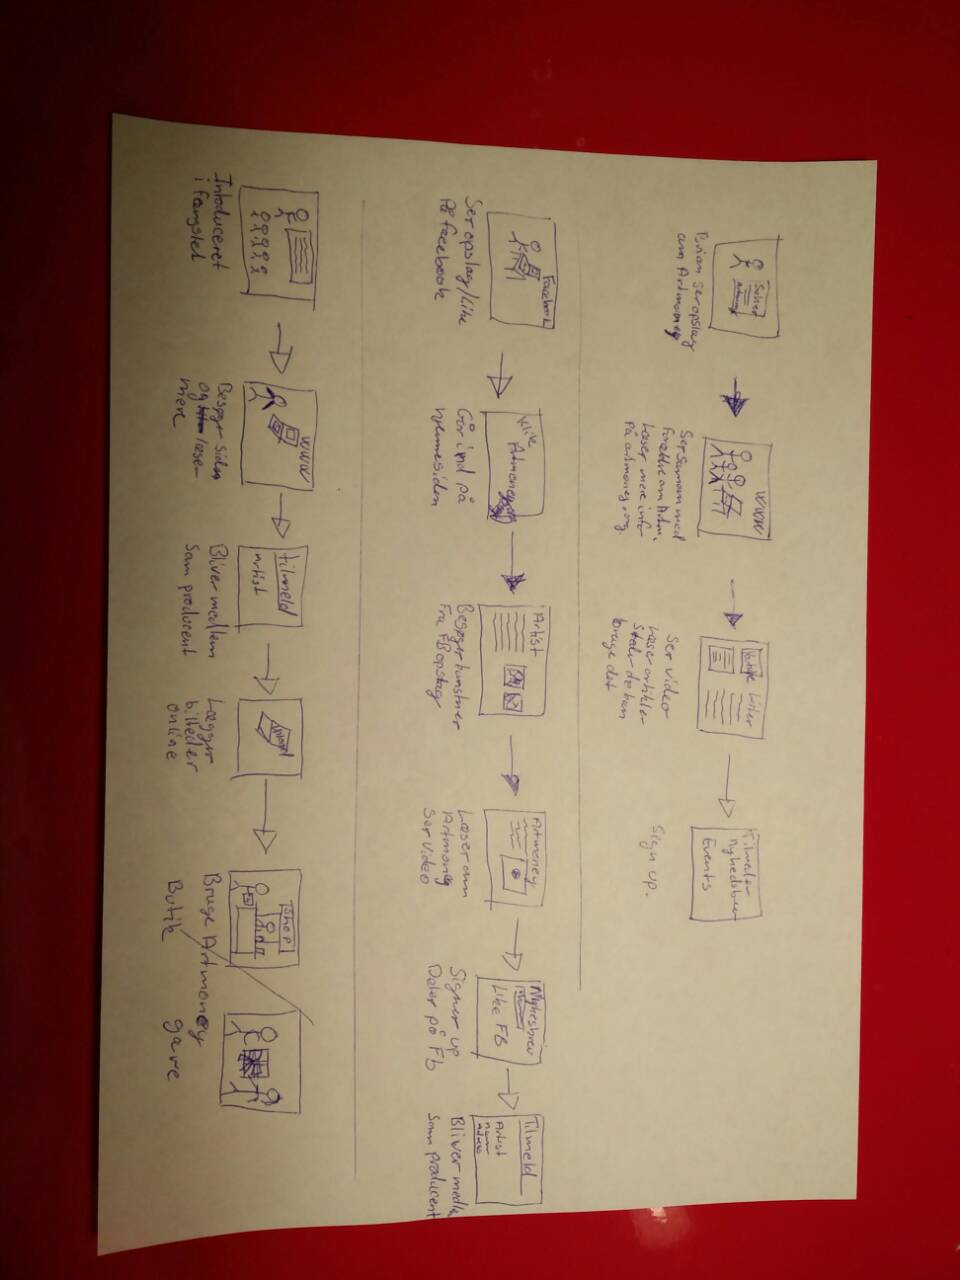 ser opslag
om Artmoney
WWW
Ser sammen med
forældre om Artm.
Læser mere info
På artmoney.org.
Ser video
Læser artikler
Steder de kan
bruge det
Tilmelder
Nyhedsbrev
Events
Sign up.
Facebook
Ser opslag/Like
På facebook
Klik
Artmoney
Går ind på
hjemmesiden
Artist
Besøger kunstner
Fra FB opslag
Artmoney
Læser om
Artmoney
Ser video
Nyhedsbrev
Like FB
Signer up
Deler på Fb
Tilmeld
Artist
Bliver medlem
Som producent
Introduceret
i fængslet
WWW
Besøger siden
og læser
mere
tilmeld
artist
Bliver medlem
Som producent
Lægger
billeder
online
Shop
Bruge Artmoney
Butik / gave